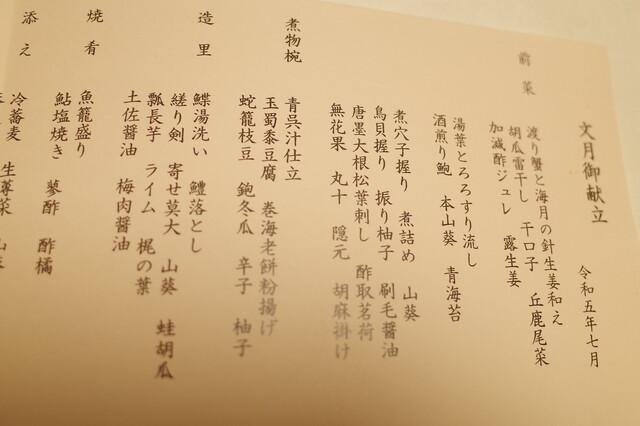 文月御献立
令和五年七月
前菜
渡り蟹と海月の針生姜和え
胡瓜雷干し 干口子 丘鹿尾菜
加減酢ジュレ 露生姜
湯葉とろろすり流し
酒煎り鮑 本山葵 青海苔
煮穴子握り 煮詰め 山葵
鳥貝握り 振り柚子 刷毛醤油
唐墨大根松葉刺し 酢取茗荷
無花果 丸十 隠元 胡麻掛け
煮物椀
青呉汁仕立
玉蜀黍豆腐 巻海老餅粉揚げ
蛇籠枝豆 鉋冬瓜 辛子 柚子
造里
鰈湯洗い 鱧落とし
縒り剣 寄せ莫大 山葵 蛙胡瓜
瓢長芋 ライム 梶の葉
土佐醤油 梅肉醤油
焼肴
魚籠盛り
鮎塩焼き 蓼酢 酢橘
添え
冷蕎麦 生蓴菜